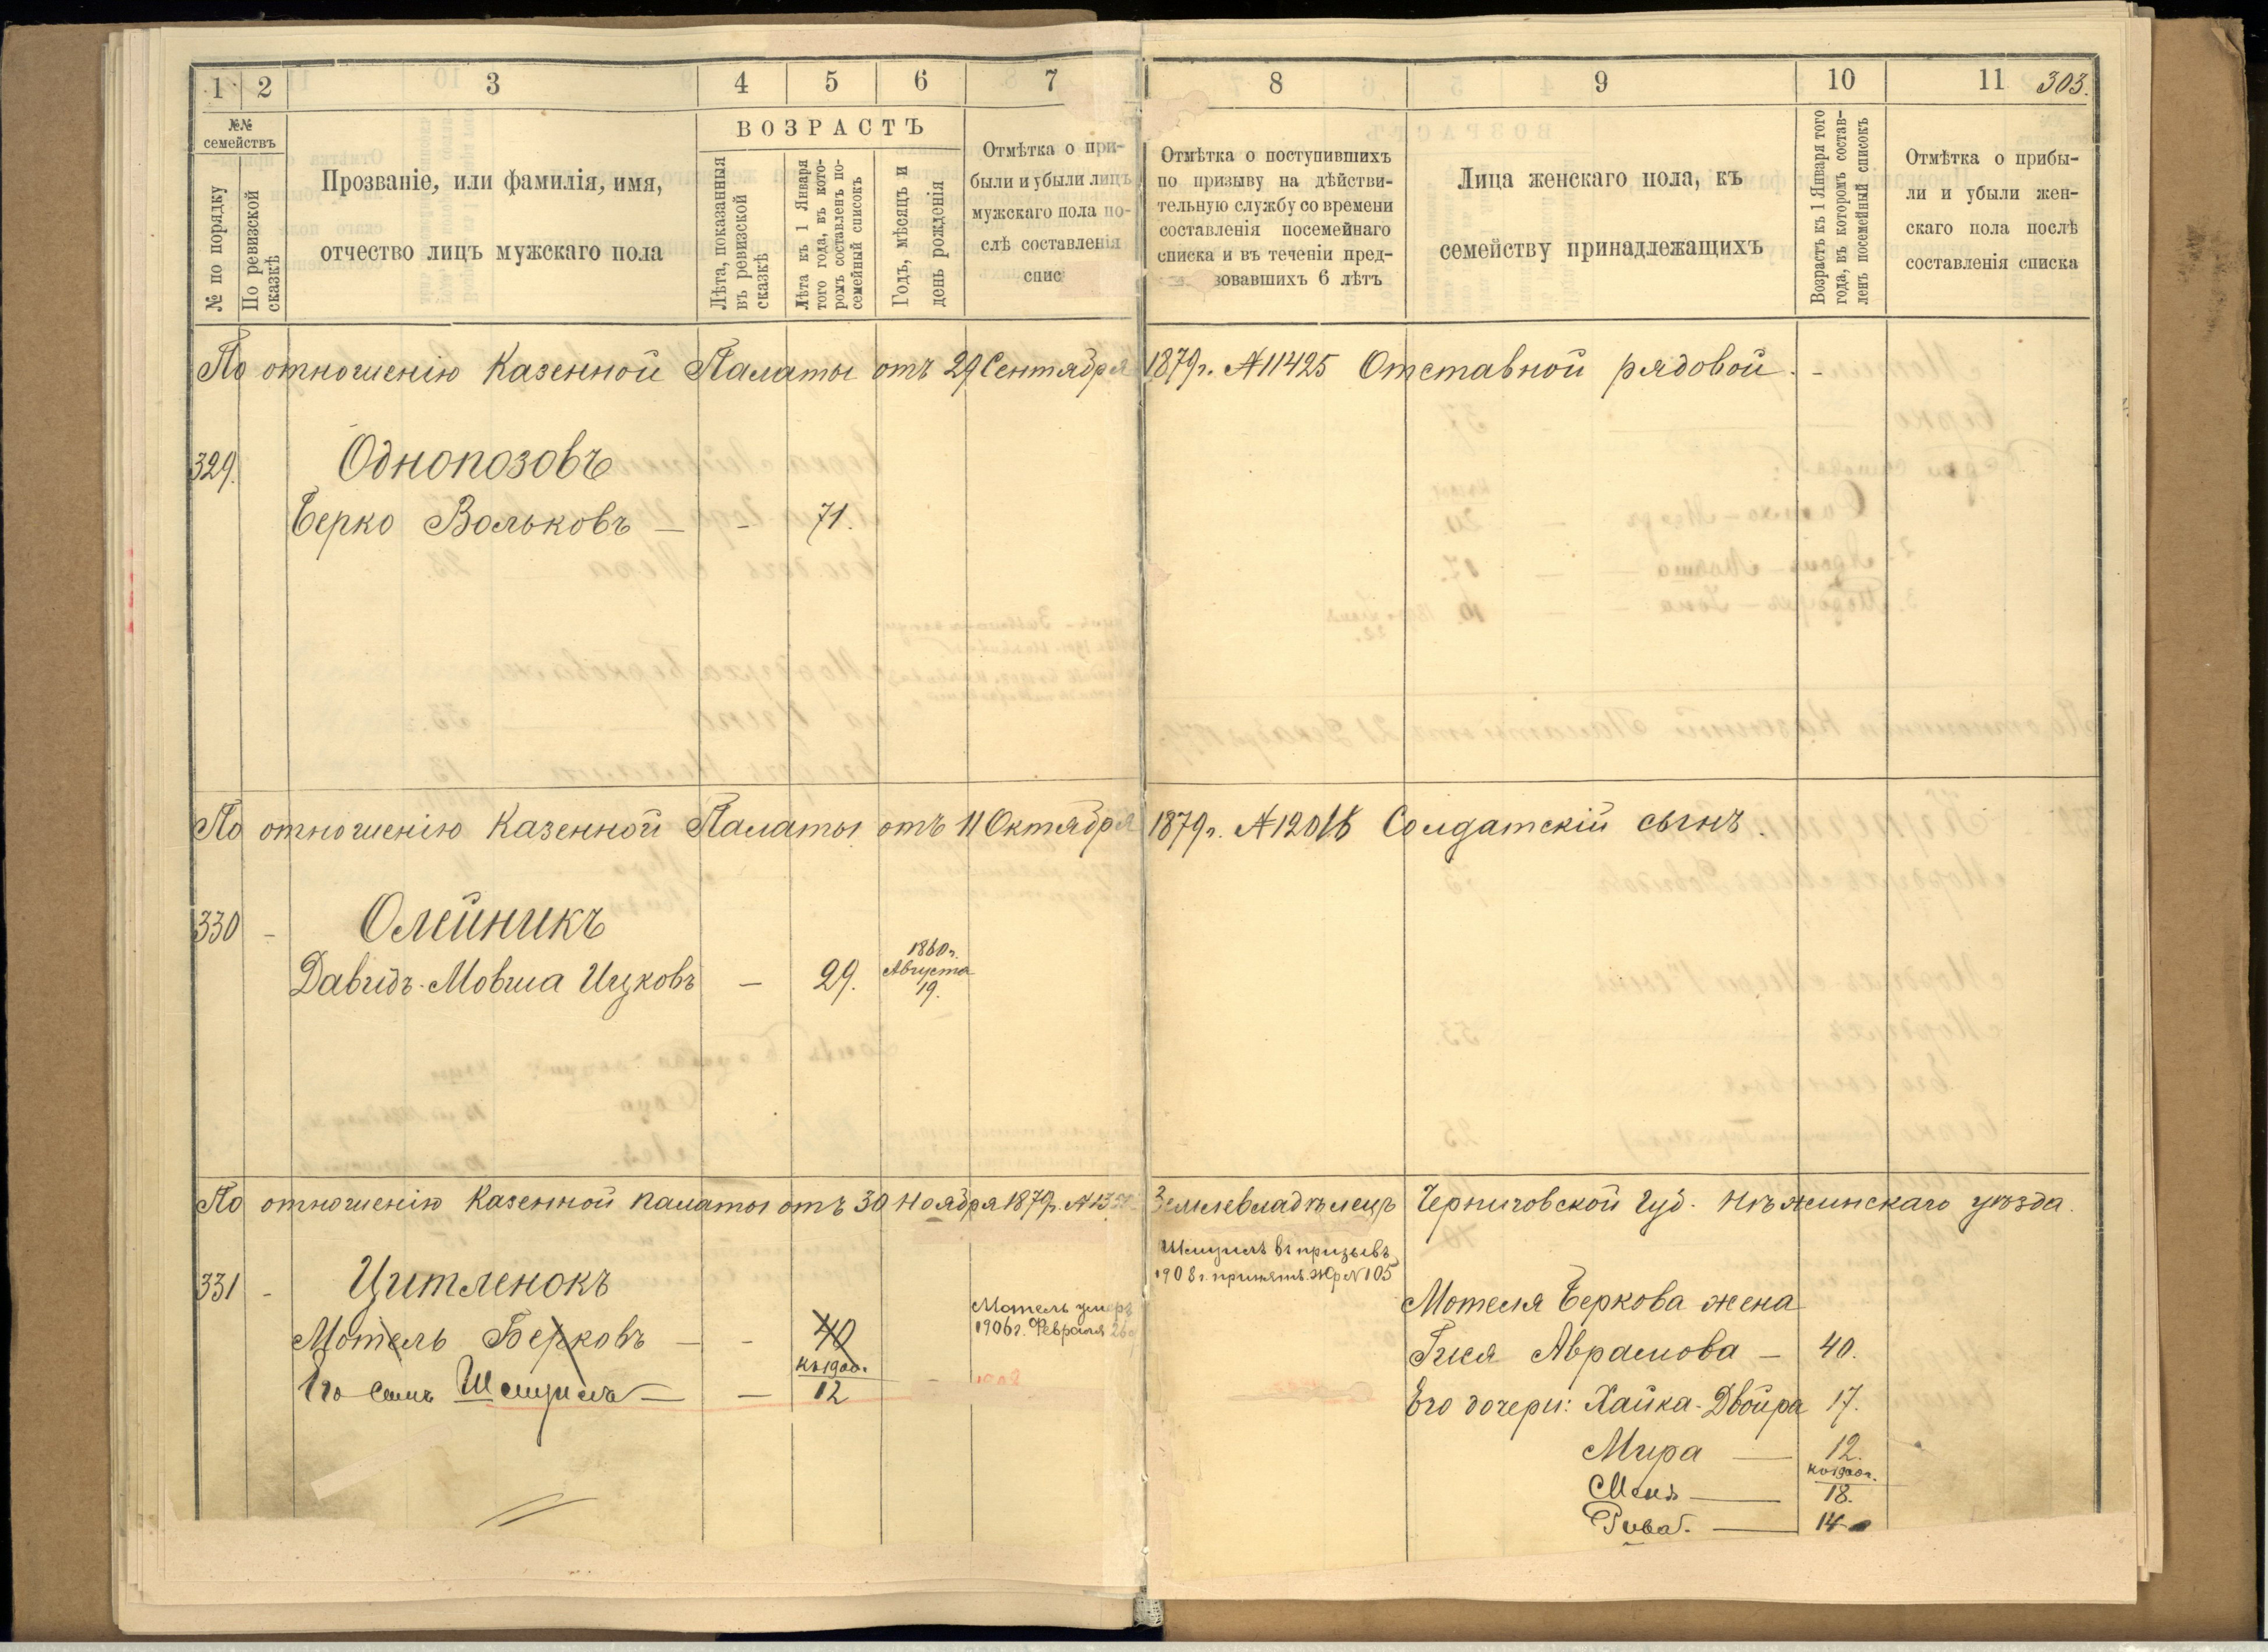 1 2 3 4 5 6 7 8 9 10 11 303.
№№ семействъ
№ по порядку
По ревизской сказкѣ
Прозваніе, или фамилія, имя,
отчество лицъ мужскаго пола
ВОЗРАСТЪ
Лѣта, показанныя
въ ревизской
сказкѣ
Лѣта къ 1 Января
того года, въ кото-
ромъ составленъ по-
семейный списокъ
Годъ, мѣсяцъ и
день рожденія
Отмѣтка о при-
были и убыли лицъ
мужскаго пола по-
слѣ составленія
спис
Отмѣтка о поступившихъ
по призыву на дѣйстви-
тельную службу со времени
составленія посемейнаго
списка и въ теченіи пред-
зовавшихъ 6 лѣтъ
Лица женскаго пола, къ
семейству принадлежащихъ
Возрастъ къ 1 Января того
года, въ которомъ состав-
ленъ посемейный списокъ
Отмѣтка о прибы-
ли и убыли жен-
скаго пола послѣ
составленія списка
По отношенію Казенной Палаты отъ 29 Сентября 1879 г. № 11425 Отставной рядовой. -
329.
Однопозовъ
Берко Вольковъ — - 71.
По отношенію Казенной Палаты отъ 11 Октября 1879 г. № Солдатскій сынъ.
330 -
Олейникъ
Давидъ-Мовша Ицковъ — 29.
1860 г.
Августа
19.
По отношенію Казенной палаты отъ 30 Ноября 1879 г. № Землевладѣлецъ Черниговской Губ. Нѣжинскаго уѣзда.
331 -
Цитленокъ
Мотель Берковъ — - 40
къ 1900 г.
Его сынъ Шмуилъ — — 12
Мотель умеръ
1906 г. Февраля
1908
Шмуилъ въ призывъ
1908 г. принятъ. Жр № 105
Мотеля Беркова жена
Гися Абрамова — 40.
Его дочери: Хайка-Двойра 17.
Мира — 12.
къ 1900 г.
— 18.
Рива. — 14